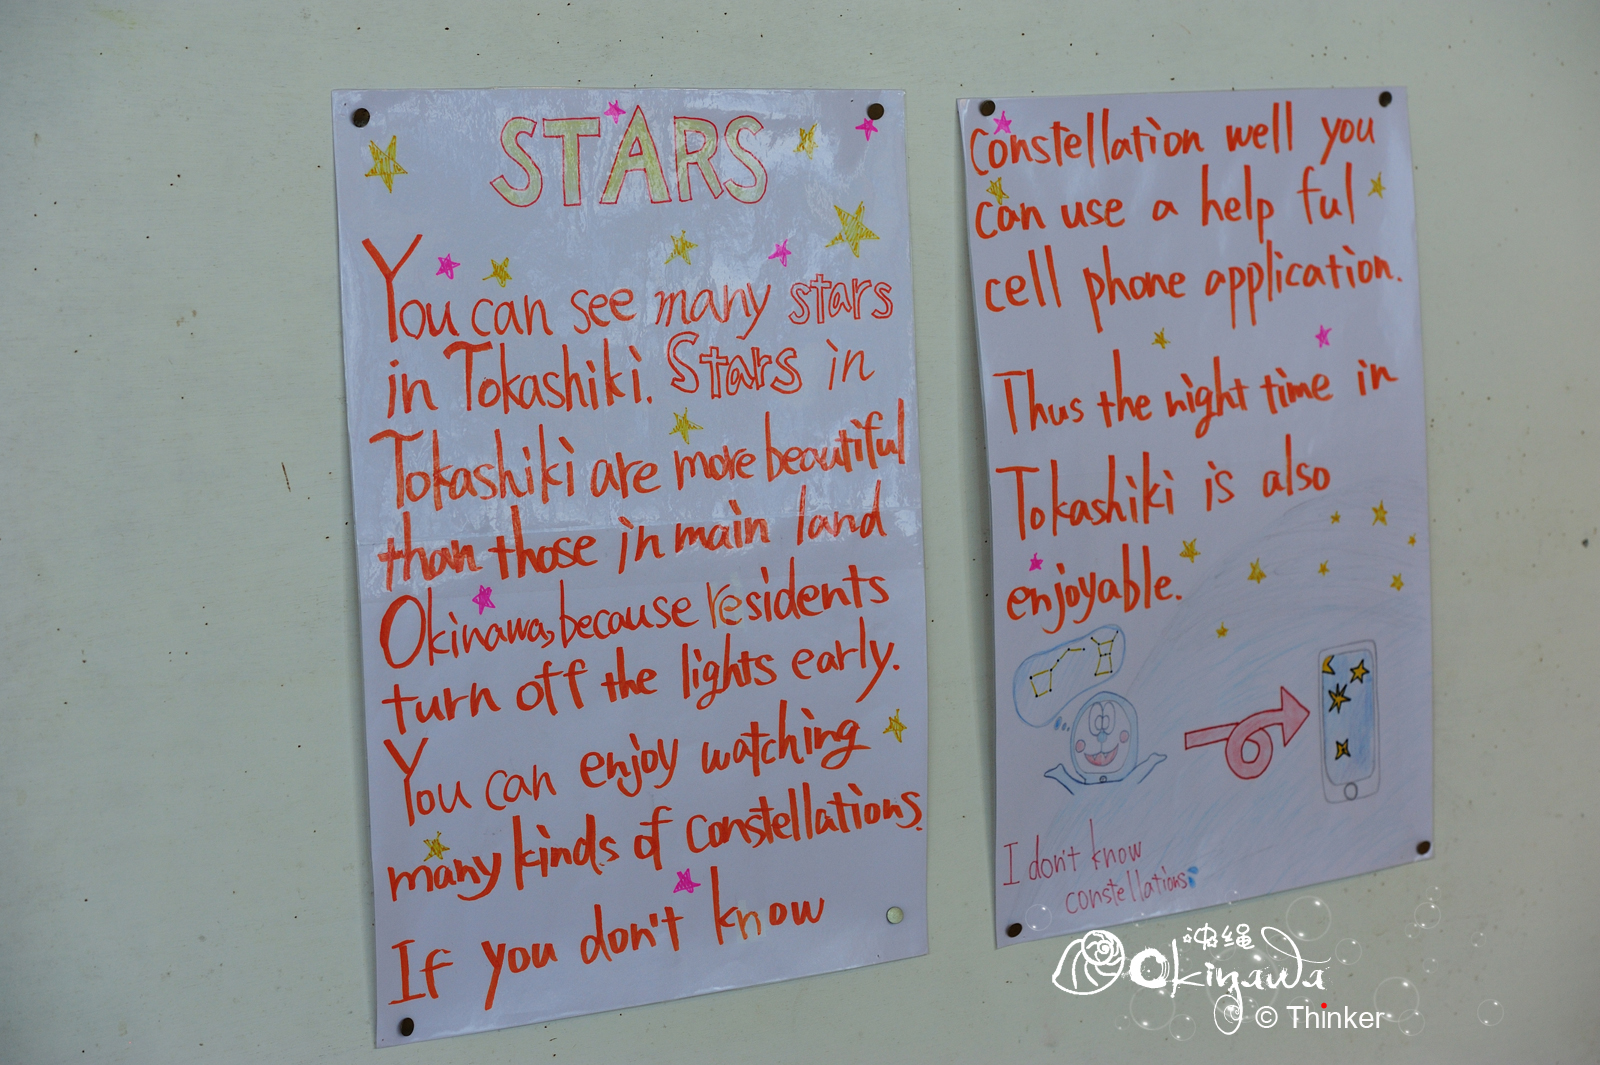 STARS
You can see many stars
in Tokashiki. Stars in
Tokashiki are more beautiful
than those in main land
Okinawa, because residents
turn off the lights early.
You can enjoy watching
many kinds of constellations.
If you don't know
constellation well you
can use a help ful
cell phone application.
Thus the night time in
Tokashiki is also
enjoyable.
I don't know
constellations
冲绳
Okinawa
© Thinker